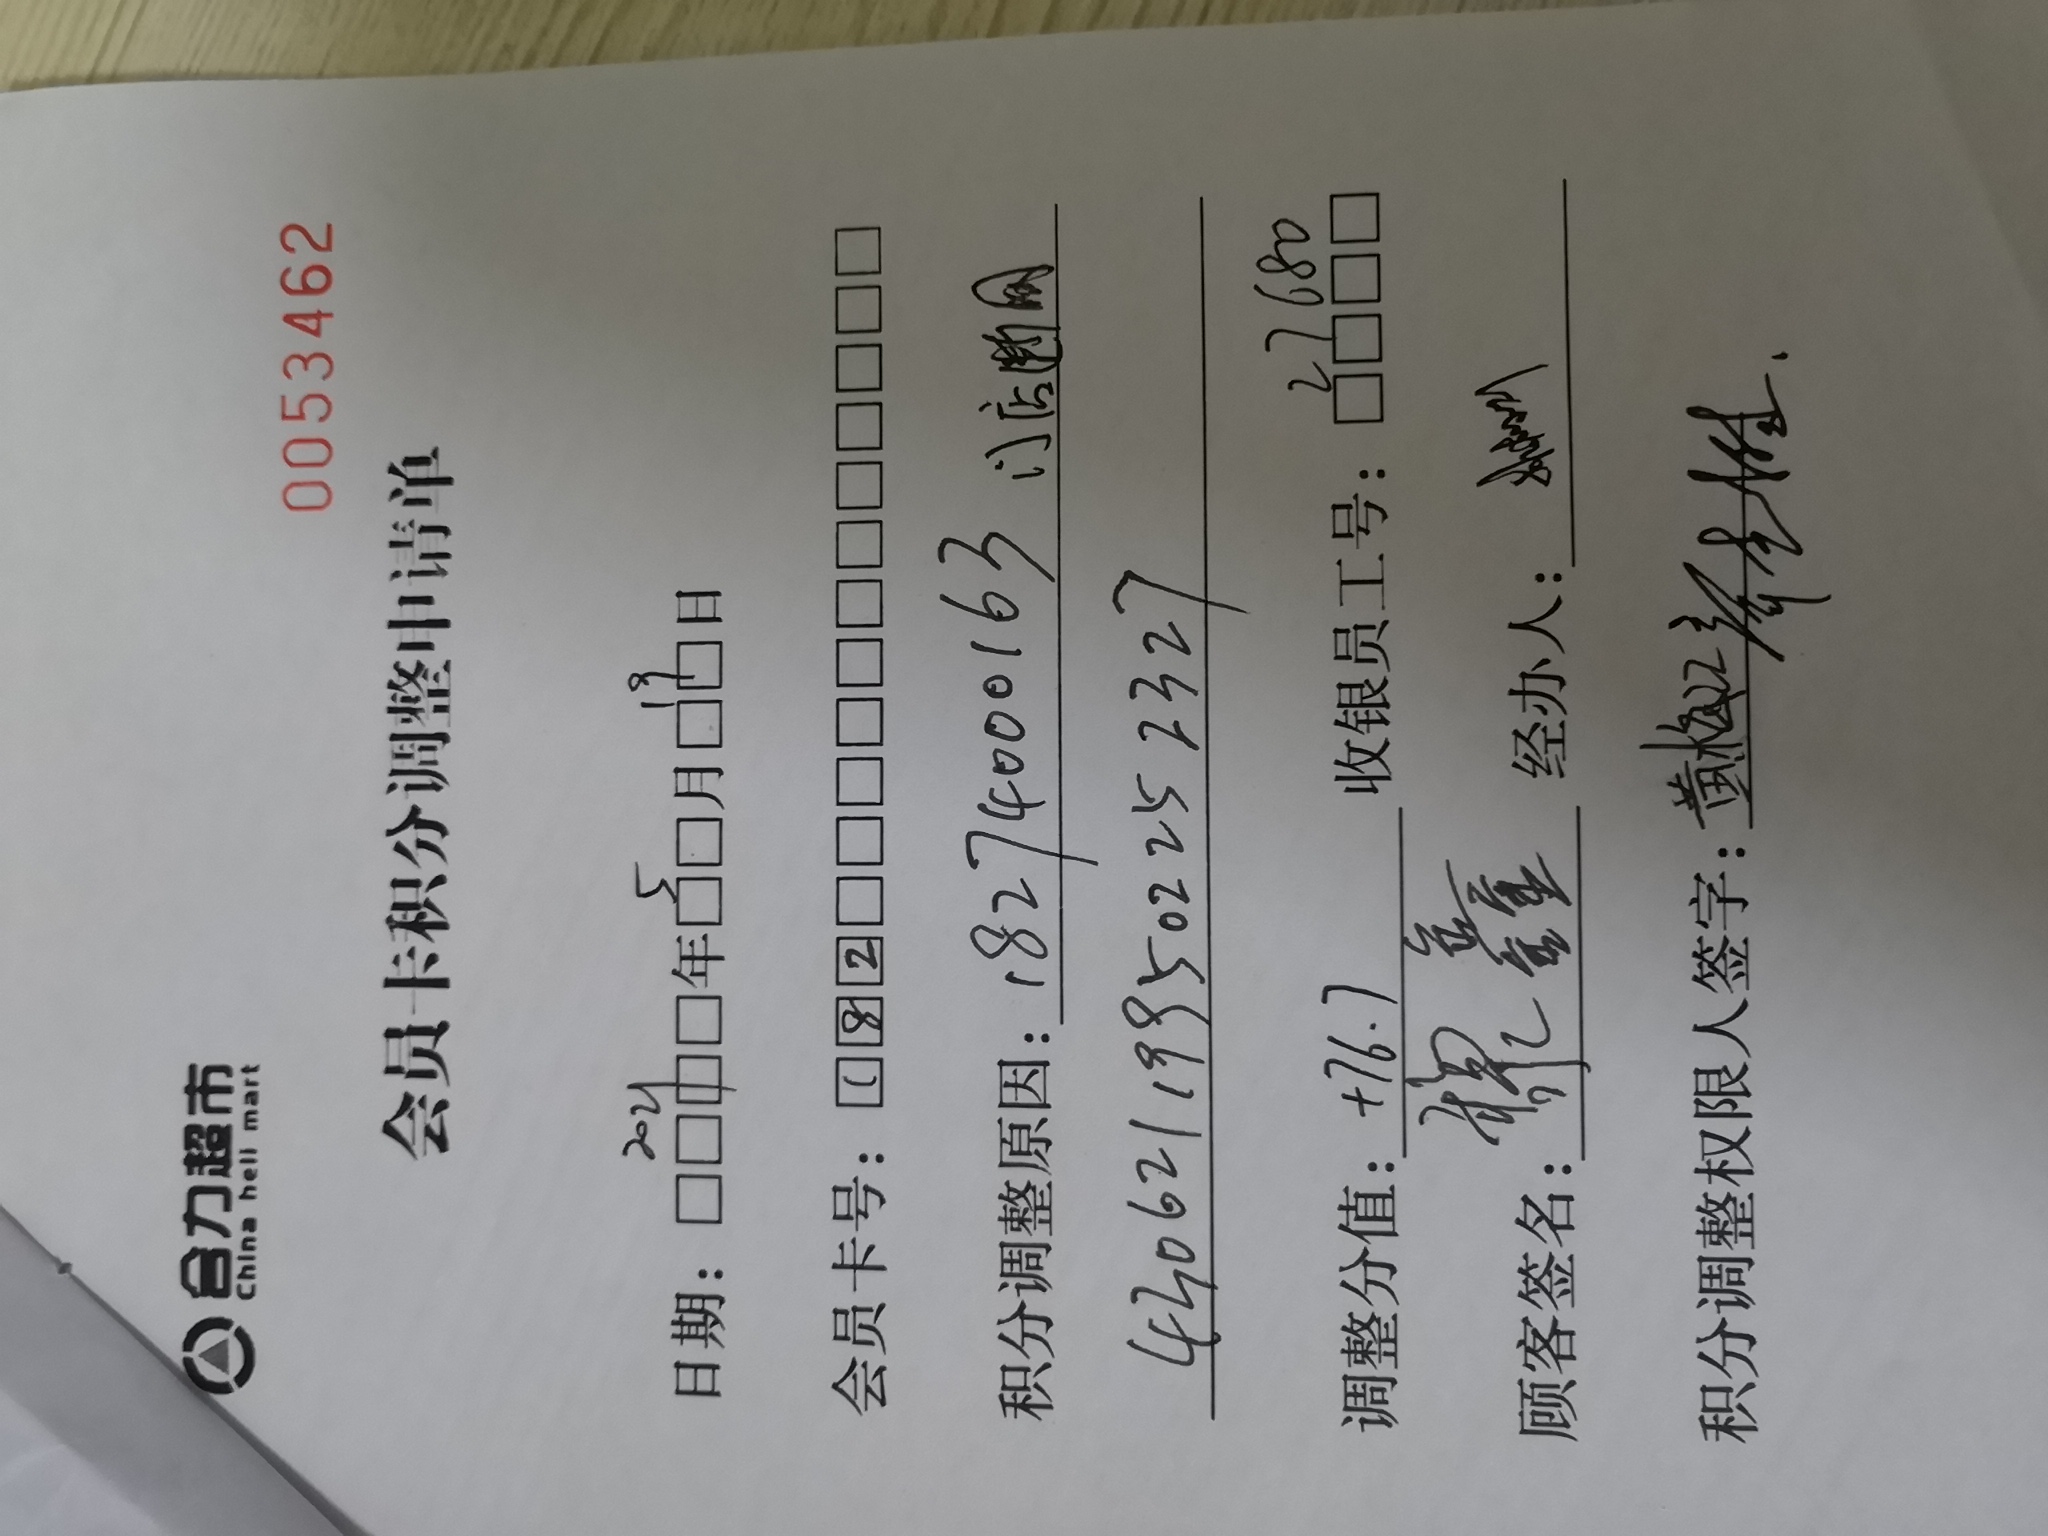 合力超市
China heli mart
0053462
会员卡积分调整申请单
日期：2021年5月19日
会员卡号：182
积分调整原因：18274000163 门店
430621199502252327
调整分值：+76.7 收银员工号：27680
顾客签名： 鑫 经办人：
积分调整权限人签字：黄